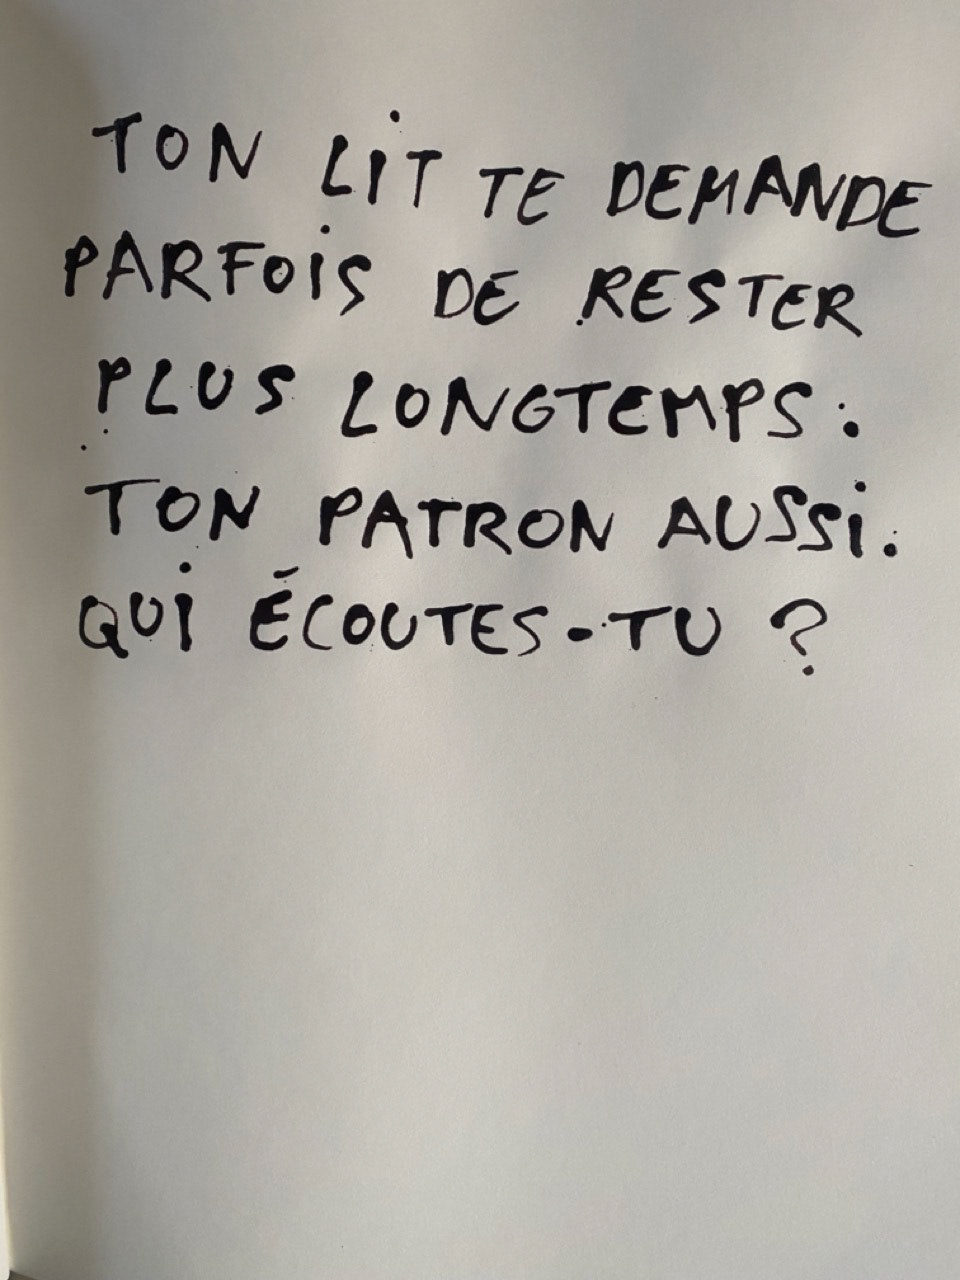 TON LIT TE DEMANDE
PARFOIS DE RESTER
PLUS LONGTEMPS.
TON PATRON AUSSI.
QUI ÉCOUTES-TU ?